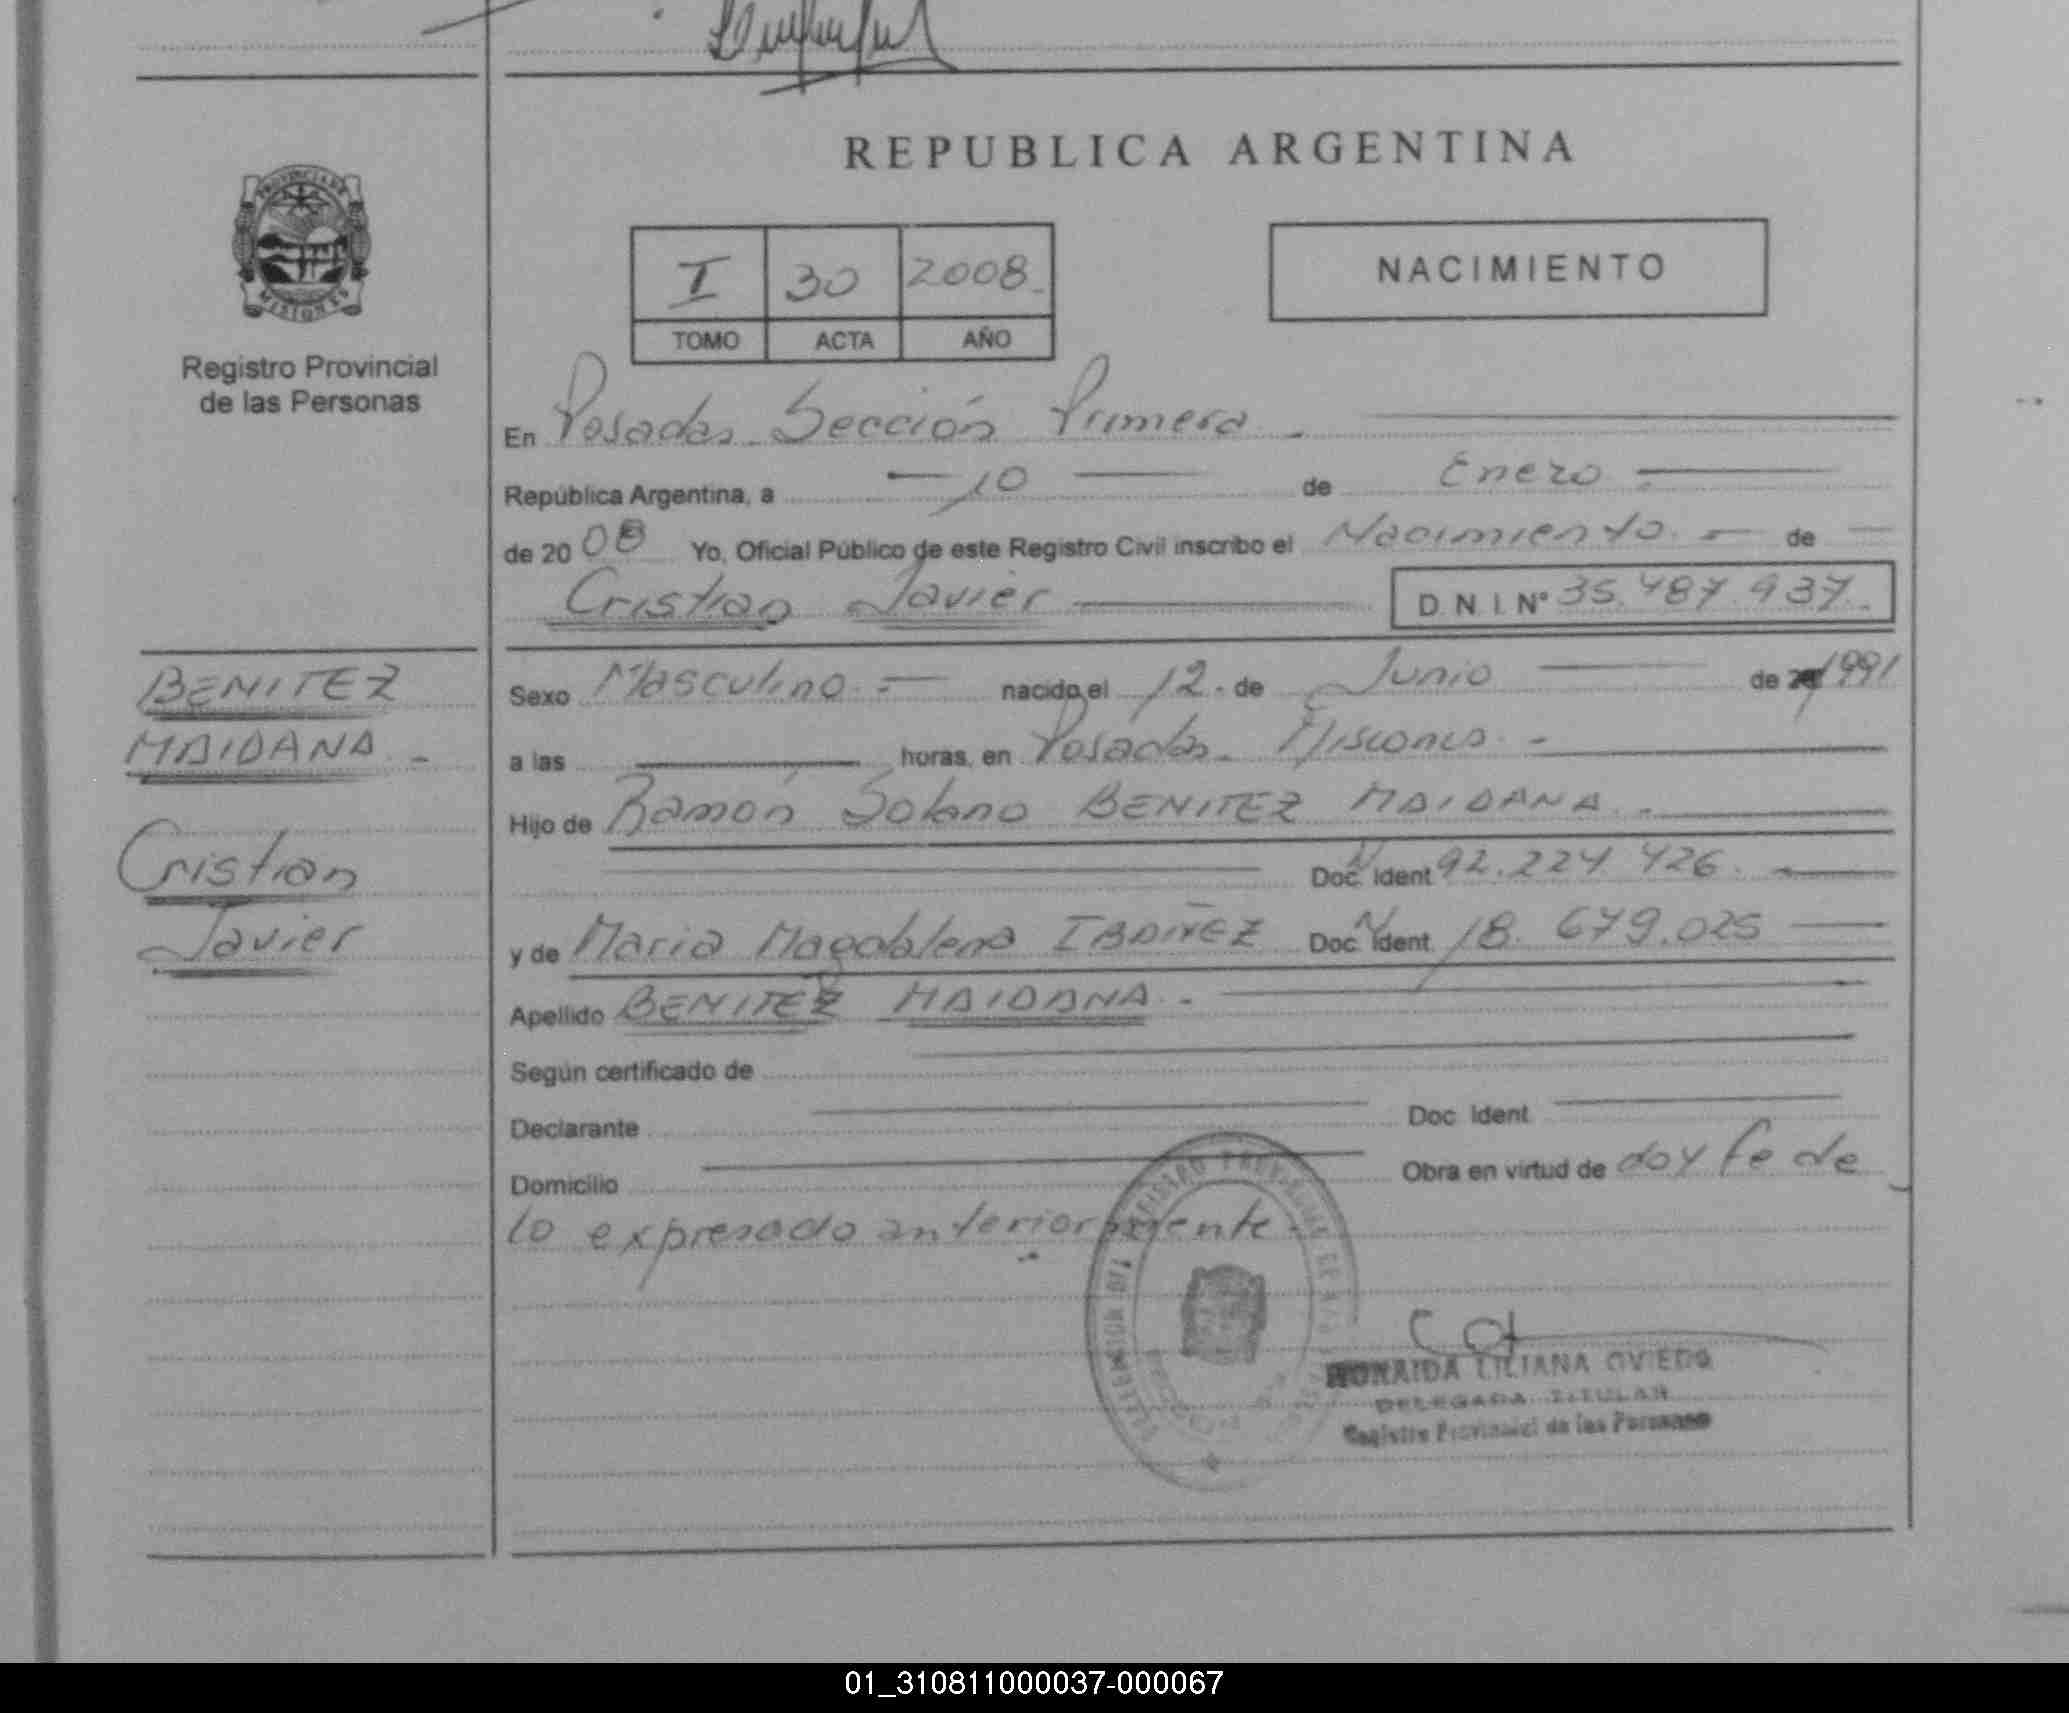 REPUBLICA ARGENTINA
PROVINCIA DE
MISIONES
Registro Provincial
de las Personas
I 30 2008
TOMO ACTA AÑO
NACIMIENTO
En Posadas Sección Primera
República Argentina, a 10 de Enero
de 20 08 Yo, Oficial Público de este Registro Civil inscribo el Nacimiento de
Cristian Javier D.N.I. Nº 35.487.937
BENITEZ
MAIDANA
Cristian
Javier
Sexo Masculino nacido el 12 de Junio de 1991
a las horas, en Posadas Misiones
Hijo de Ramón Solano BENITEZ MAIDANA
Doc. Ident. Nº 92.224.426
y de Maria Magdalena IBAÑEZ Doc. Ident. Nº 18.679.025
Apellido BENITEZ MAIDANA
Según certificado de
Declarante Doc. Ident.
Domicilio Obra en virtud de doy fe de
lo expresado anteriormente.
LILIANA OVIEDO
DELEGADA TITULAR
Registro Provincial de las Personas
01_310811000037-000067